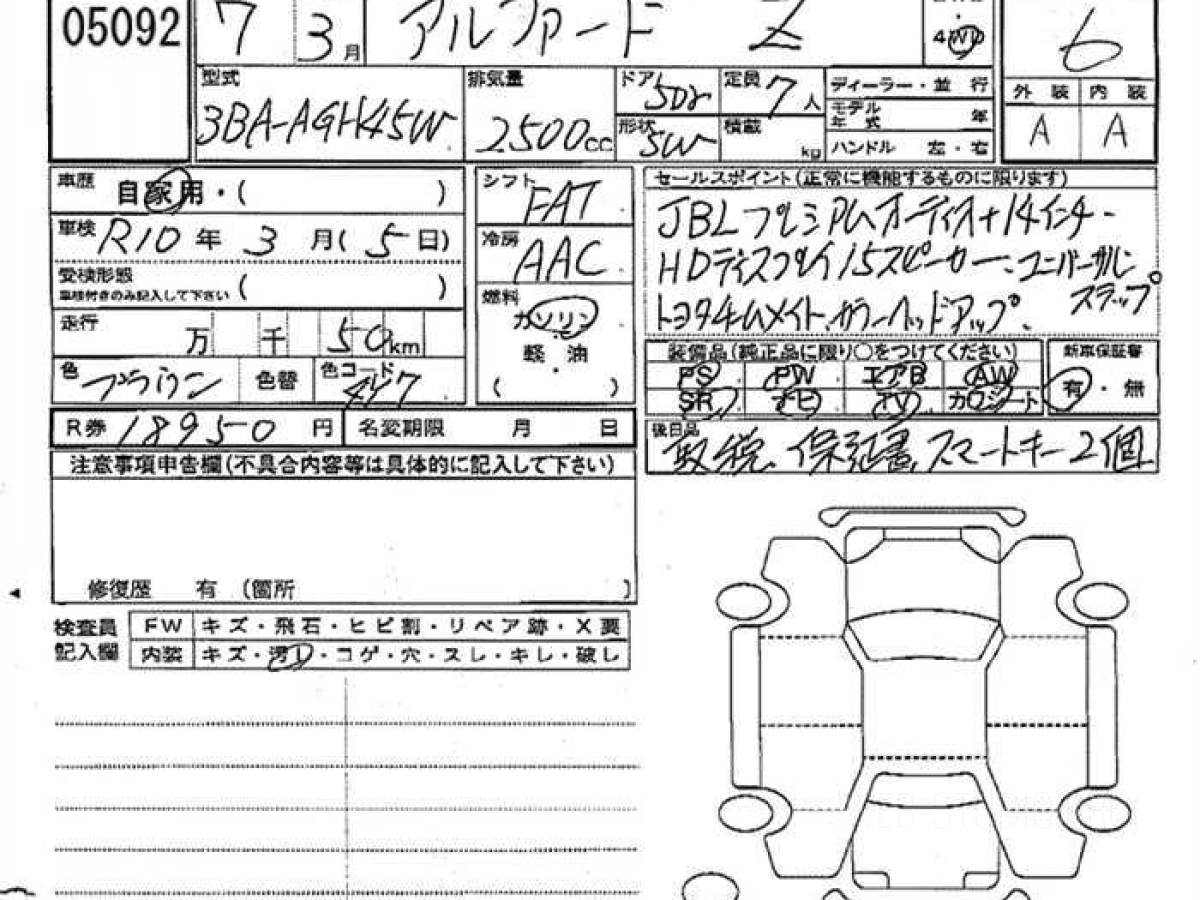 05092
7 3月 アルファード Z
4WD
6
型式
3BA-AGH45W
排気量
2500cc
ドア 5Dr
形状 SW
定員 7人
積載 kg
ディーラー・並 行
モデル年式 年
ハンドル 左・右
外 装 内 装
A A
車歴 自家用・( )
車検 R10年 3月( 5日)
受検形態
車検付きのみ記入して下さい ( )
走行 万 千 50km
色 ブラウン 色替 色コード 4X7
シフト FAT
冷房 AAC
燃料
ガソリン
・
軽 油
( )
セールスポイント(正常に機能するものに限ります)
JBLプレミアムオーディオ+14インチ
HDディスプレイ 15スピーカー、ユニバーサルステップ
トヨタチームメイト、カラーヘッドアップ、
装備品(純正品に限り〇をつけてください)
PS PW エアB AW
SR ナビ TV カワシート
新車保証書
有・無
R券 18950 円 名変期限 月 日
後日品
取説、保証書、スマートキー2個
注意事項申告欄(不具合内容等は具体的に記入して下さい)
修復歴 有 (箇所 )
検査員
記入欄
FW キズ・飛石・ヒビ割・リペア跡・X要
内装 キズ・汚れ・コゲ・穴・スレ・キレ・破し